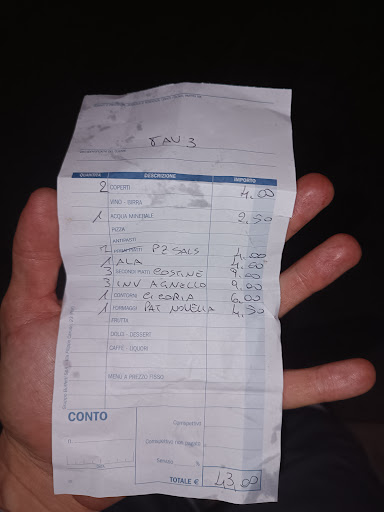 TAV 3
QUANTITÀ DESCRIZIONE IMPORTO
2 COPERTI 4.00
VINO - BIRRA
1 ACQUA MINERALE 2.50
PIZZA
ANTIPASTI
PZ SALS 4.00
1 ALA 4.00
3 SECONDI PIATTI COSTINE 9.00
3 INV AGNELLO 9.00
1 CONTORNI CICORIA 6.00
1 FORMAGGI PAT NOVELLA 4.50
FRUTTA
DOLCI - DESSERT
CAFFÈ - LIQUORI
MENÙ A PREZZO FISSO
CONTO
Corrispettivo
Servizio %
TOTALE € 43.00